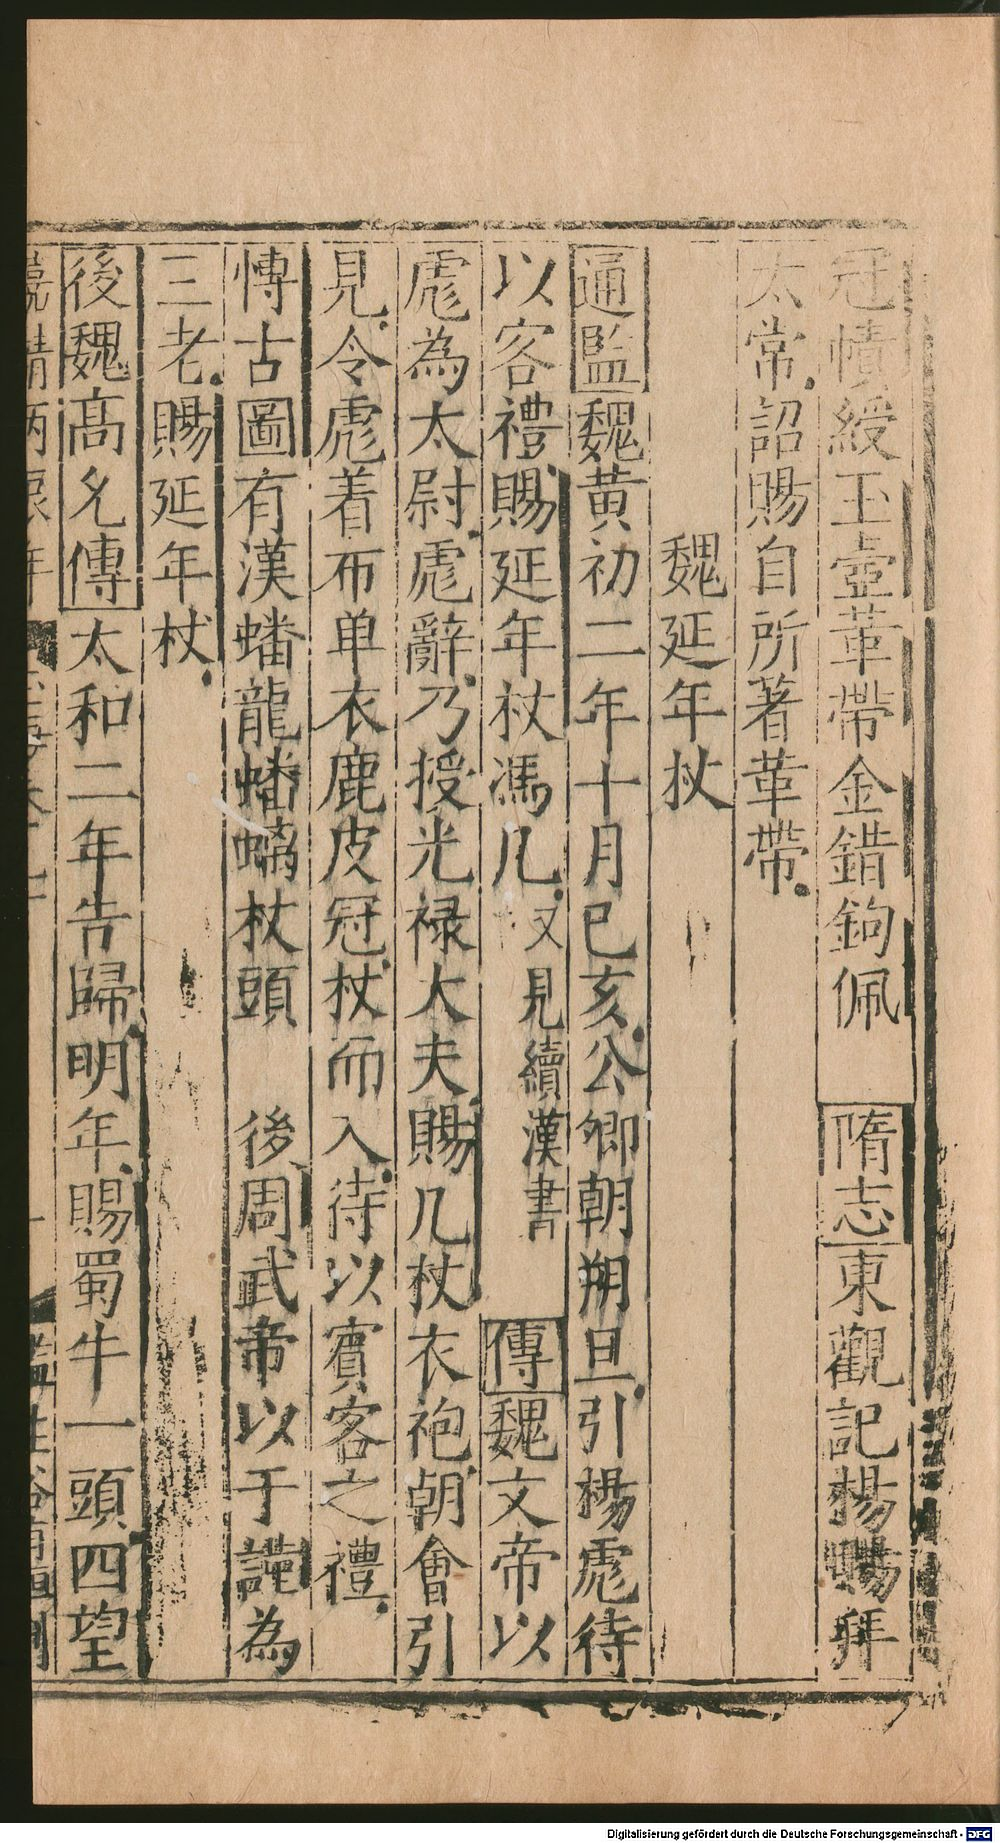 冠幘綬玉壺革帶金錯鉤佩 隋志東觀記楊賜拜
太常詔賜自所著革帶
魏延年杖
通監魏黃初二年十月己亥公卿朝朔旦引楊彪待
以客禮賜延年杖馮几又見續漢書 傳魏文帝以
彪為太尉彪辭乃授光祿大夫賜几杖衣袍朝會引
見令彪着布单衣鹿皮冠杖而入待以賓客之禮
愽古圖有漢蟠龍蟠螭杖頭 後周武帝以于謹為
三老賜延年杖
後魏高允傳太和二年告歸明年賜蜀牛一頭四望
Digitalisierung gefördert durch die Deutsche Forschungsgemeinschaft - DFG